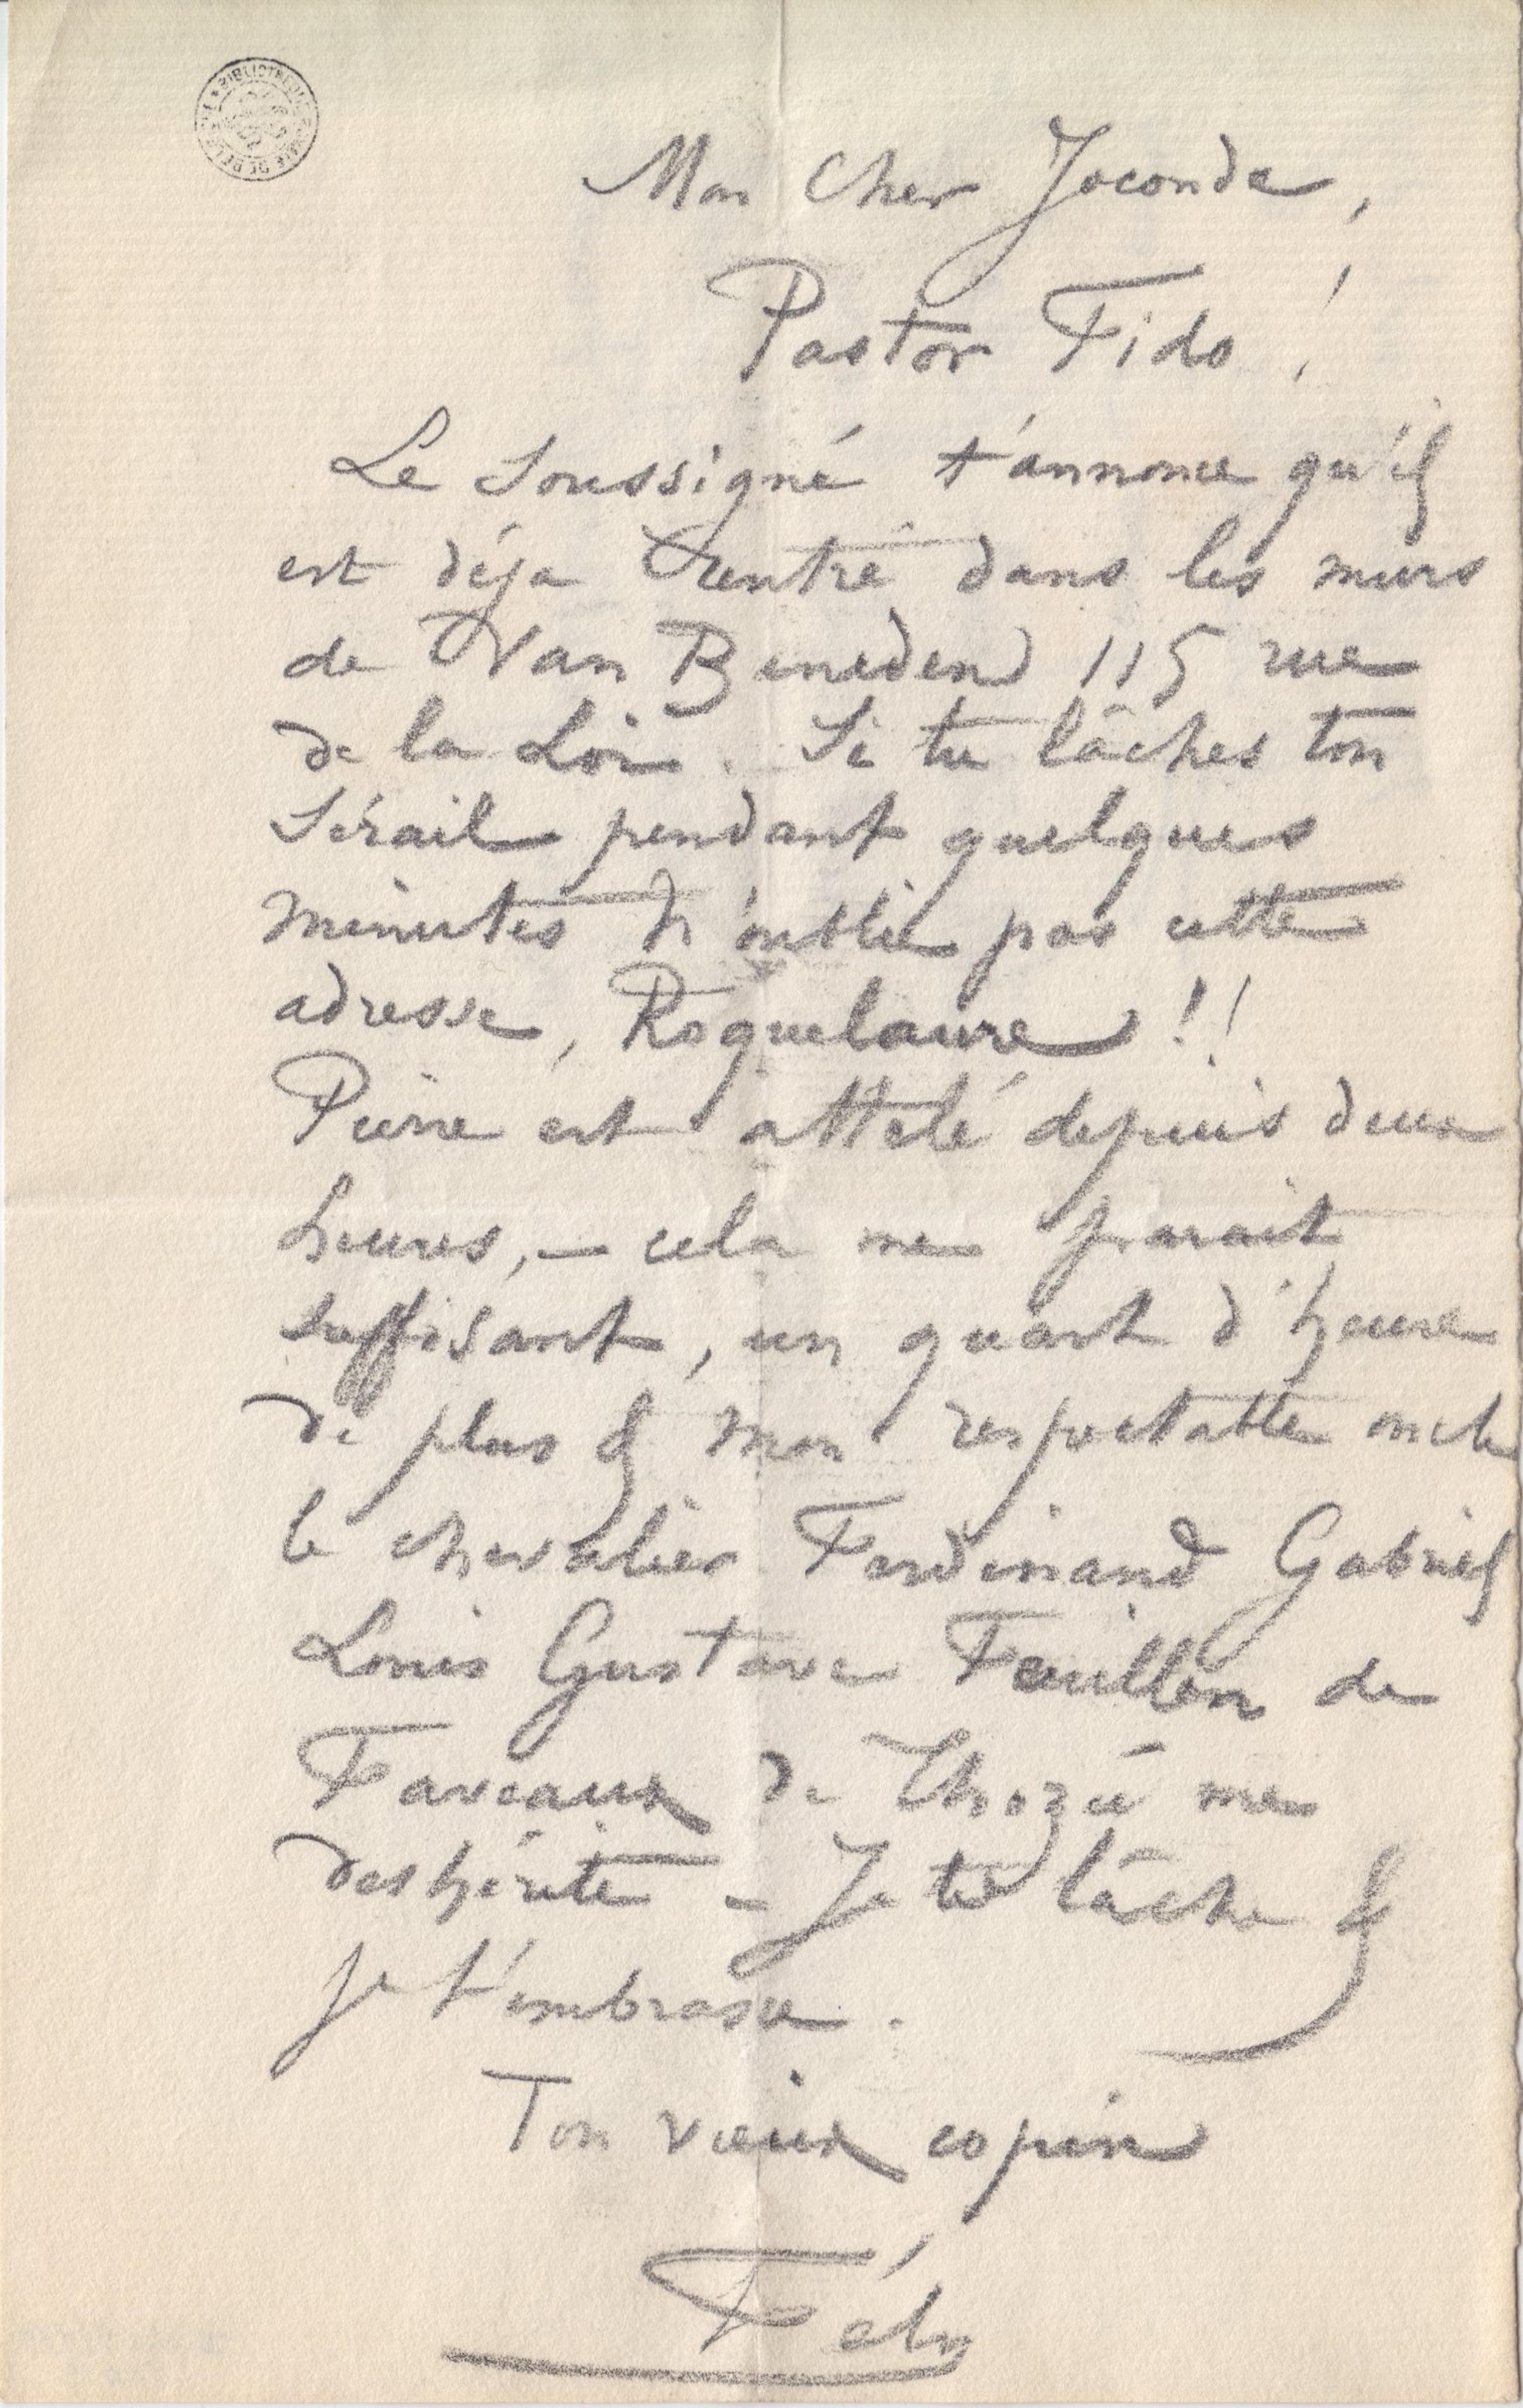 Mon Cher Joconde,
Pastor Fido !
Le Soussigné t'annonce qu'il
est déja rentré dans les murs
de Van Beneden 115 rue
de la Loi. Si tu lâches ton
Sérail pendant quelques
minutes n'oublie pas cette
adresse, Roquelaure !!
Pierre est attelé depuis deux
heures, – cela me parait
suffisant, un quart d'heure
de plus & mon respectable oncle
le chevalier Ferdinand Gabriel
Louis Gustave Feuillen de
Faveaux de Thozée me
deshérite – Je te lâche &
je t'embrasse.
Ton vieux copin
Fély